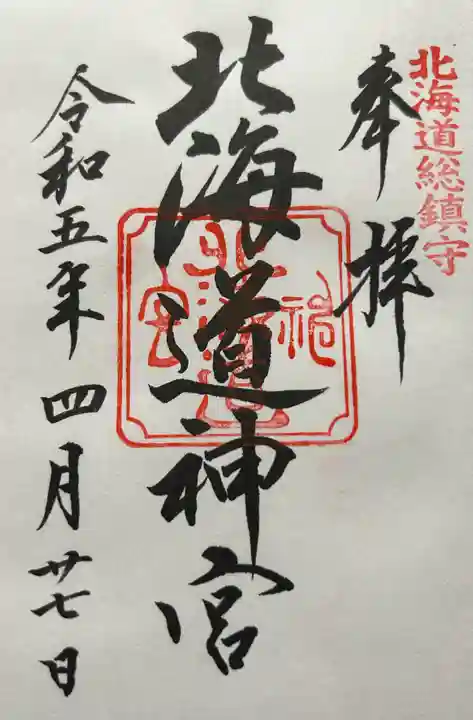 北海道総鎮守
奉拝
北海道神宮
北海道神宮
令和五年四月廿七日